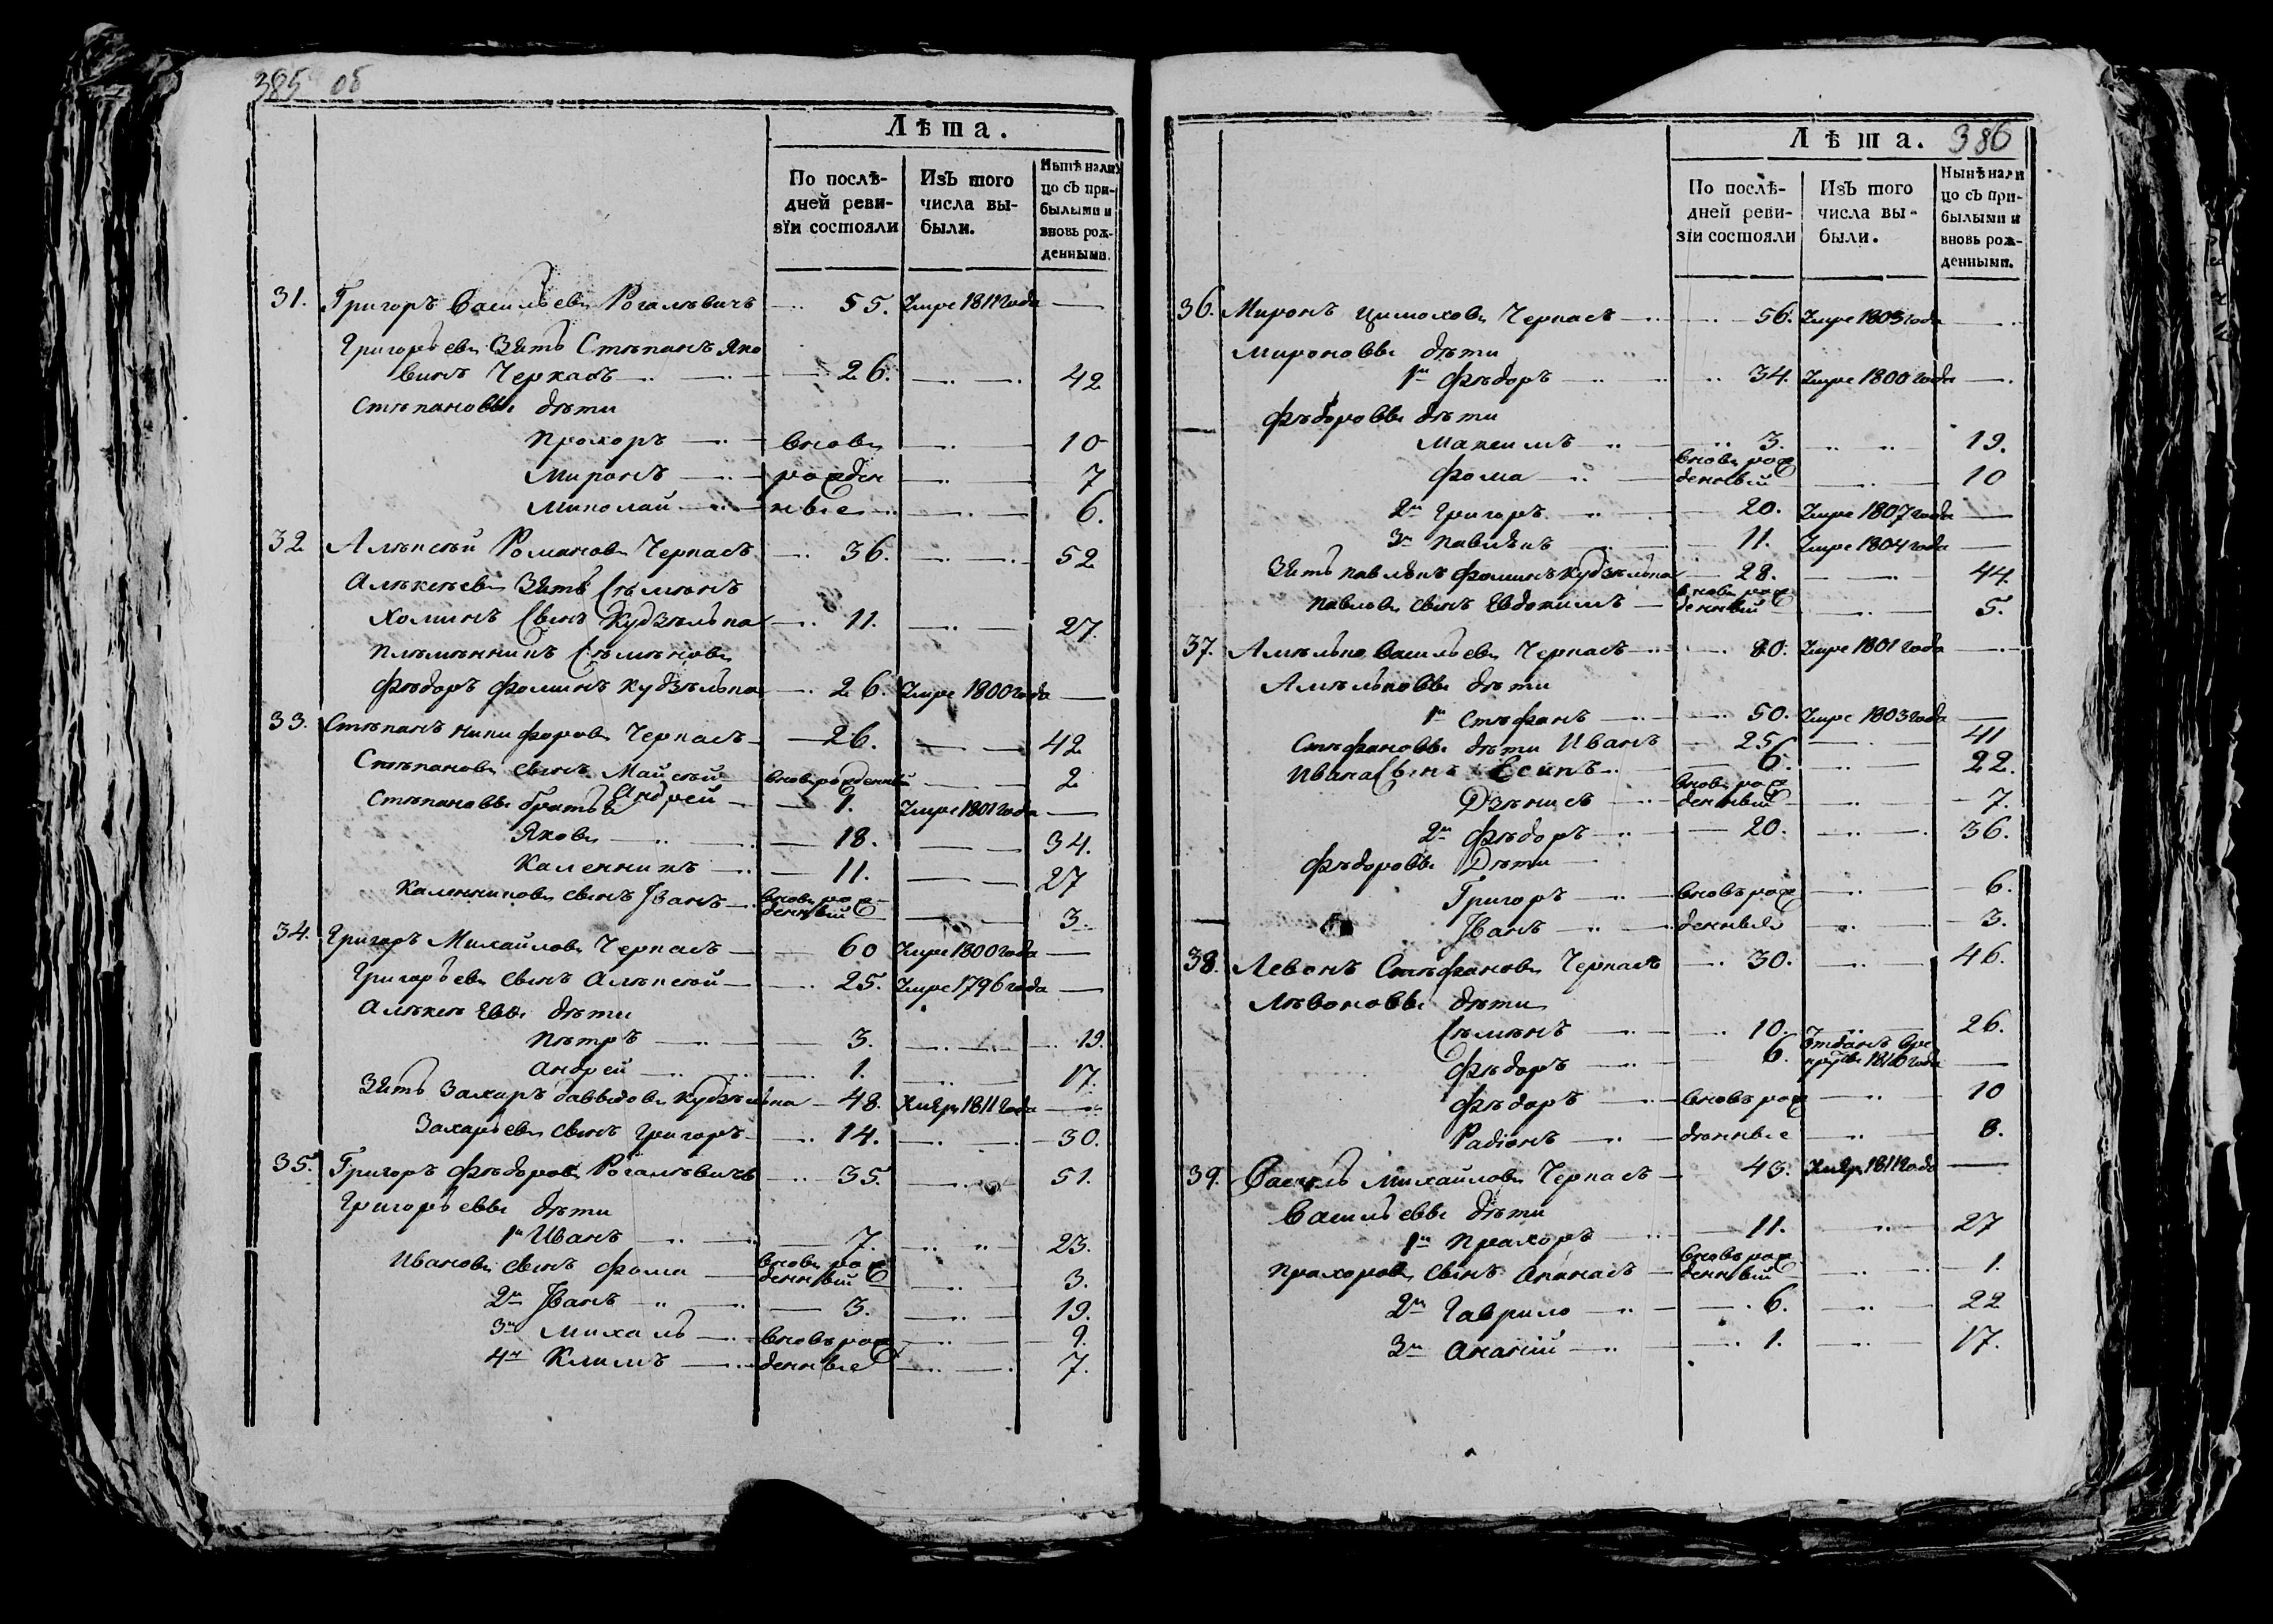 385 об
Лѣта.
По послѣ- Изъ того Нынѣ налич
дней реви- числа вы- цо съ при-
зїи состояли были. былыми и
вновь рож-
денными.
31. Григоръ Васильевъ Рогалевичъ 55. Умре 1811 года
Григорьевъ Зять Стѣпанъ Яко
винъ Черкасъ 26. 42
Стѣпановы дѣти
Прохоръ вновь 10
Миронъ рожден 7
Миколай ные 6.
32 Алѣксѣй Романовъ Черкасъ 36. 52
Алѣксѣевъ Зять Сѣмѣнъ
Хоминъ Сынъ Кудзѣлька 11. 27.
Плѣмѣнникъ Сѣмѣновъ
Фѣдоръ Фоминъ Кудзѣлька 26. Умре 1800 года
33. Стѣпанъ Никифоровъ Черкасъ 26. 42
Стѣпановъ сынъ Майсѣй вновь рожденный 2
Стѣпановы братья Андрей 1. Умре 1801 года
Яковъ 18. 34.
Каленникъ 11. 27
Каленниковъ сынъ Іванъ вновь рож-
денный 3.
34. Григоръ Михайловъ Черкасъ 60 Умре 1800 года
Григорьевъ сынъ Алѣксѣй 25. Умре 1796 года
Алѣксѣевы дѣти
Пѣтръ 3. 19.
Андрей 1. 17.
Зять Захаръ Давыдовъ Кудзѣлька 48. 1811 года
Захарьевъ сынъ Григоръ 14. 30.
35. Григоръ Фѣдоровъ Рогалѣвичъ 35. 51.
Григорьевы дѣти
1й Иванъ 7. 23.
Ивановъ сынъ Фома вновь рож
денный 3.
2й Іванъ 3. 19.
3й Михаль вновь рож 9.
4й Климъ денные 7.
386
Лѣта.
По послѣ- Изъ того Нынѣ нали
дней реви- числа вы- цо съ при-
зїи состояли были. былыми и
вновь рож-
денными.
36. Миронъ Цимохов Черкасъ 56. Умре 1803 года
Мироновы дѣти
1й Фѣдоръ 34. Умре 1800 года
Фѣдоровы дѣти
Максимъ 3. 19.
Фома вновь рож
денный 10
2й Григоръ 20. Умре 1807 года
3й Павлѣкъ 11. Умре 1804 года
Зять Павлѣкъ Фоминъ Кудзѣлька 28. 44.
Павловъ сынъ Евдокимъ вновь рож
денный 5.
37. Амѣлько Васильевъ Черкасъ 80. Умре 1801 года
Амѣльковы дѣти
1й Стѣфанъ 50. Умре 1803 года
Стѣфановы дѣти Иванъ 25. 41
Ивана Сынъ Есипъ 6. 22.
Дзѣнисъ вновь рож
денный 7.
2й Фѣдоръ 20. 36.
Фѣдоровы Дѣти
Григоръ вновь рож 6.
Іванъ денные 3.
38. Левонъ Стѣфановъ Черкасъ 30. 46.
Лѣвоновы дѣти
Сѣмѣнъ 10. 26.
Фѣдоръ 6. Отданъ въ ре
круты 1810 года
Фѣдоръ вновь рож 10
Радіонъ дѣнные 8.
39. Василь Михайловъ Черкасъ 43. 1811 года
Васильевы дѣти
1й Прохоръ 11. 27
Прохоровъ сынъ Апанасъ вновь рож
денный 1.
2й Гаврило 6. 22
3й Ананій 1. 17.